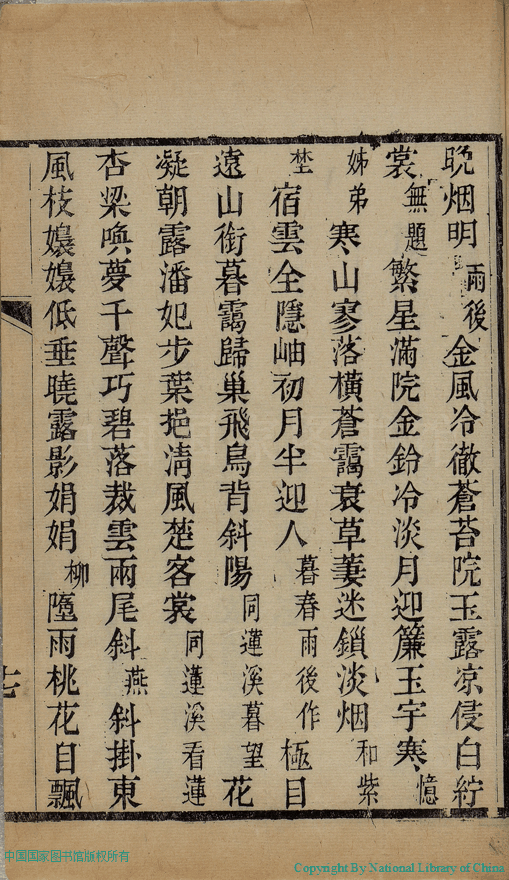 晚烟明雨後金風冷徹蒼苔院玉露凉侵白紵
裳無題繁星滿院金鈴冷淡月迎簾玉宇寒憶
姊弟寒山寥落橫蒼靄衰草萋迷鎖淡烟和紫
埜宿雲全隱岫初月半迎人暮春雨後作極目
遠山銜暮靄歸巢飛鳥背斜陽同蓮溪暮望花
凝朝露潘妃步葉挹淸風楚客裳同蓮溪看蓮
杏梁喚夢千聲巧碧落裁雲兩尾斜燕斜掛東
風枝嬝嬝低垂曉露影娟娟柳墮雨桃花自飄
中国国家图书馆版权所有
Copyright By National Library of China